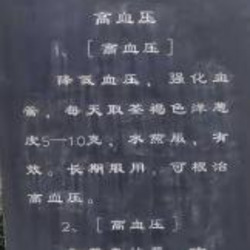 高血压
1、[高血压]
降低血压，强化血
管，每天取茶褐色洋葱
皮5—10克，水煎服，有
效。长期服用，可根治
高血压。
2、[高血压]